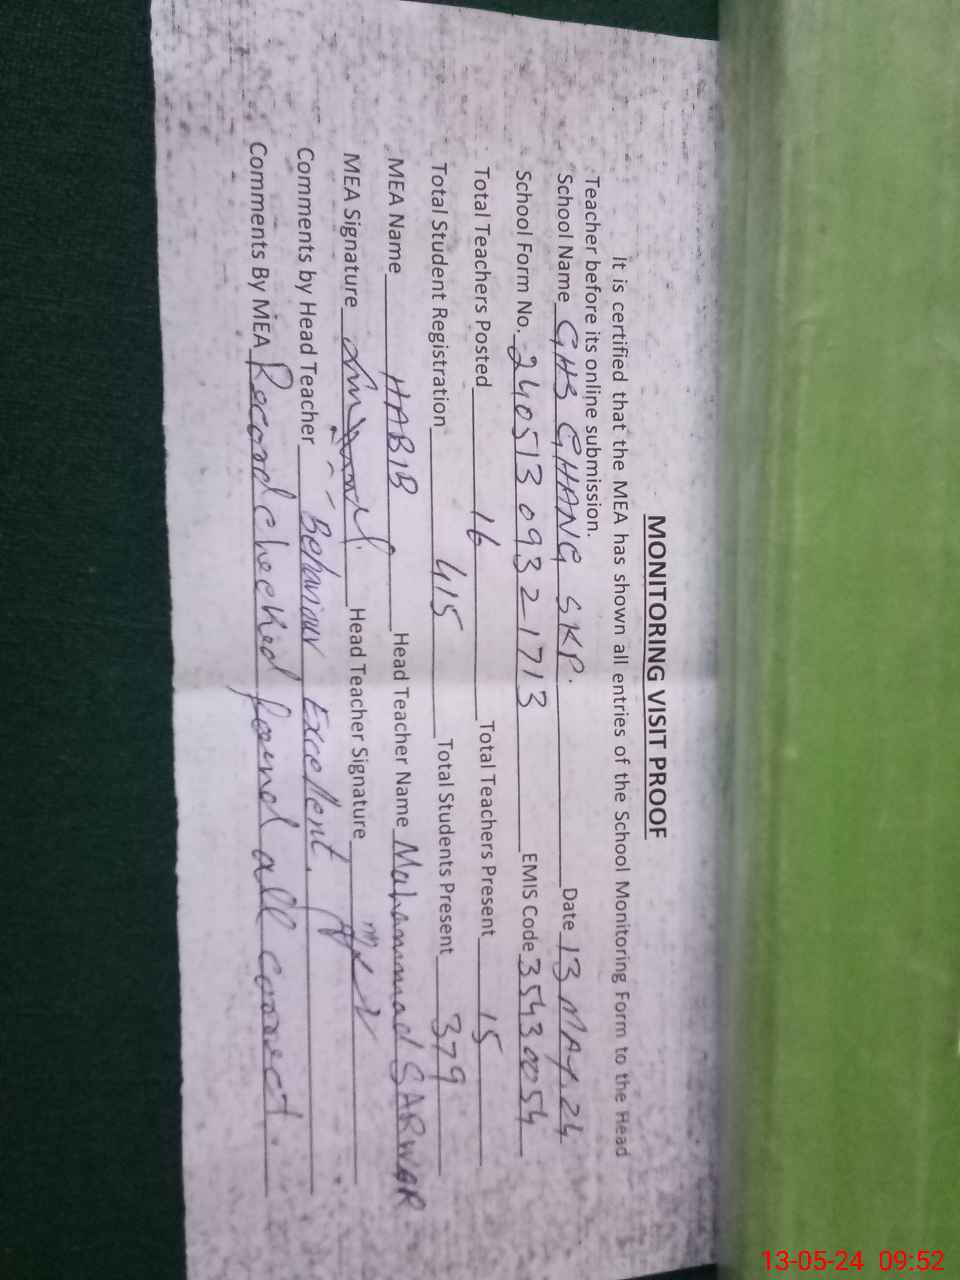 MONITORING VISIT PROOF
It is certified that the MEA has shown all entries of the School Monitoring Form to the Head
Teacher before its online submission.
School Name GHS GHANG SKP. Date 13 MAY. 24
School Form No. 240513 0932 1713 EMIS Code 35430054
Total Teachers Posted 16 Total Teachers Present 15
Total Student Registration 415 Total Students Present 379
MEA Name HABIB Head Teacher Name Muhammad SARWAR
MEA Signature Head Teacher Signature
Comments by Head Teacher Behaviour Excellent.
Comments By MEA Record checked found all correct.
13-05-24 09:52